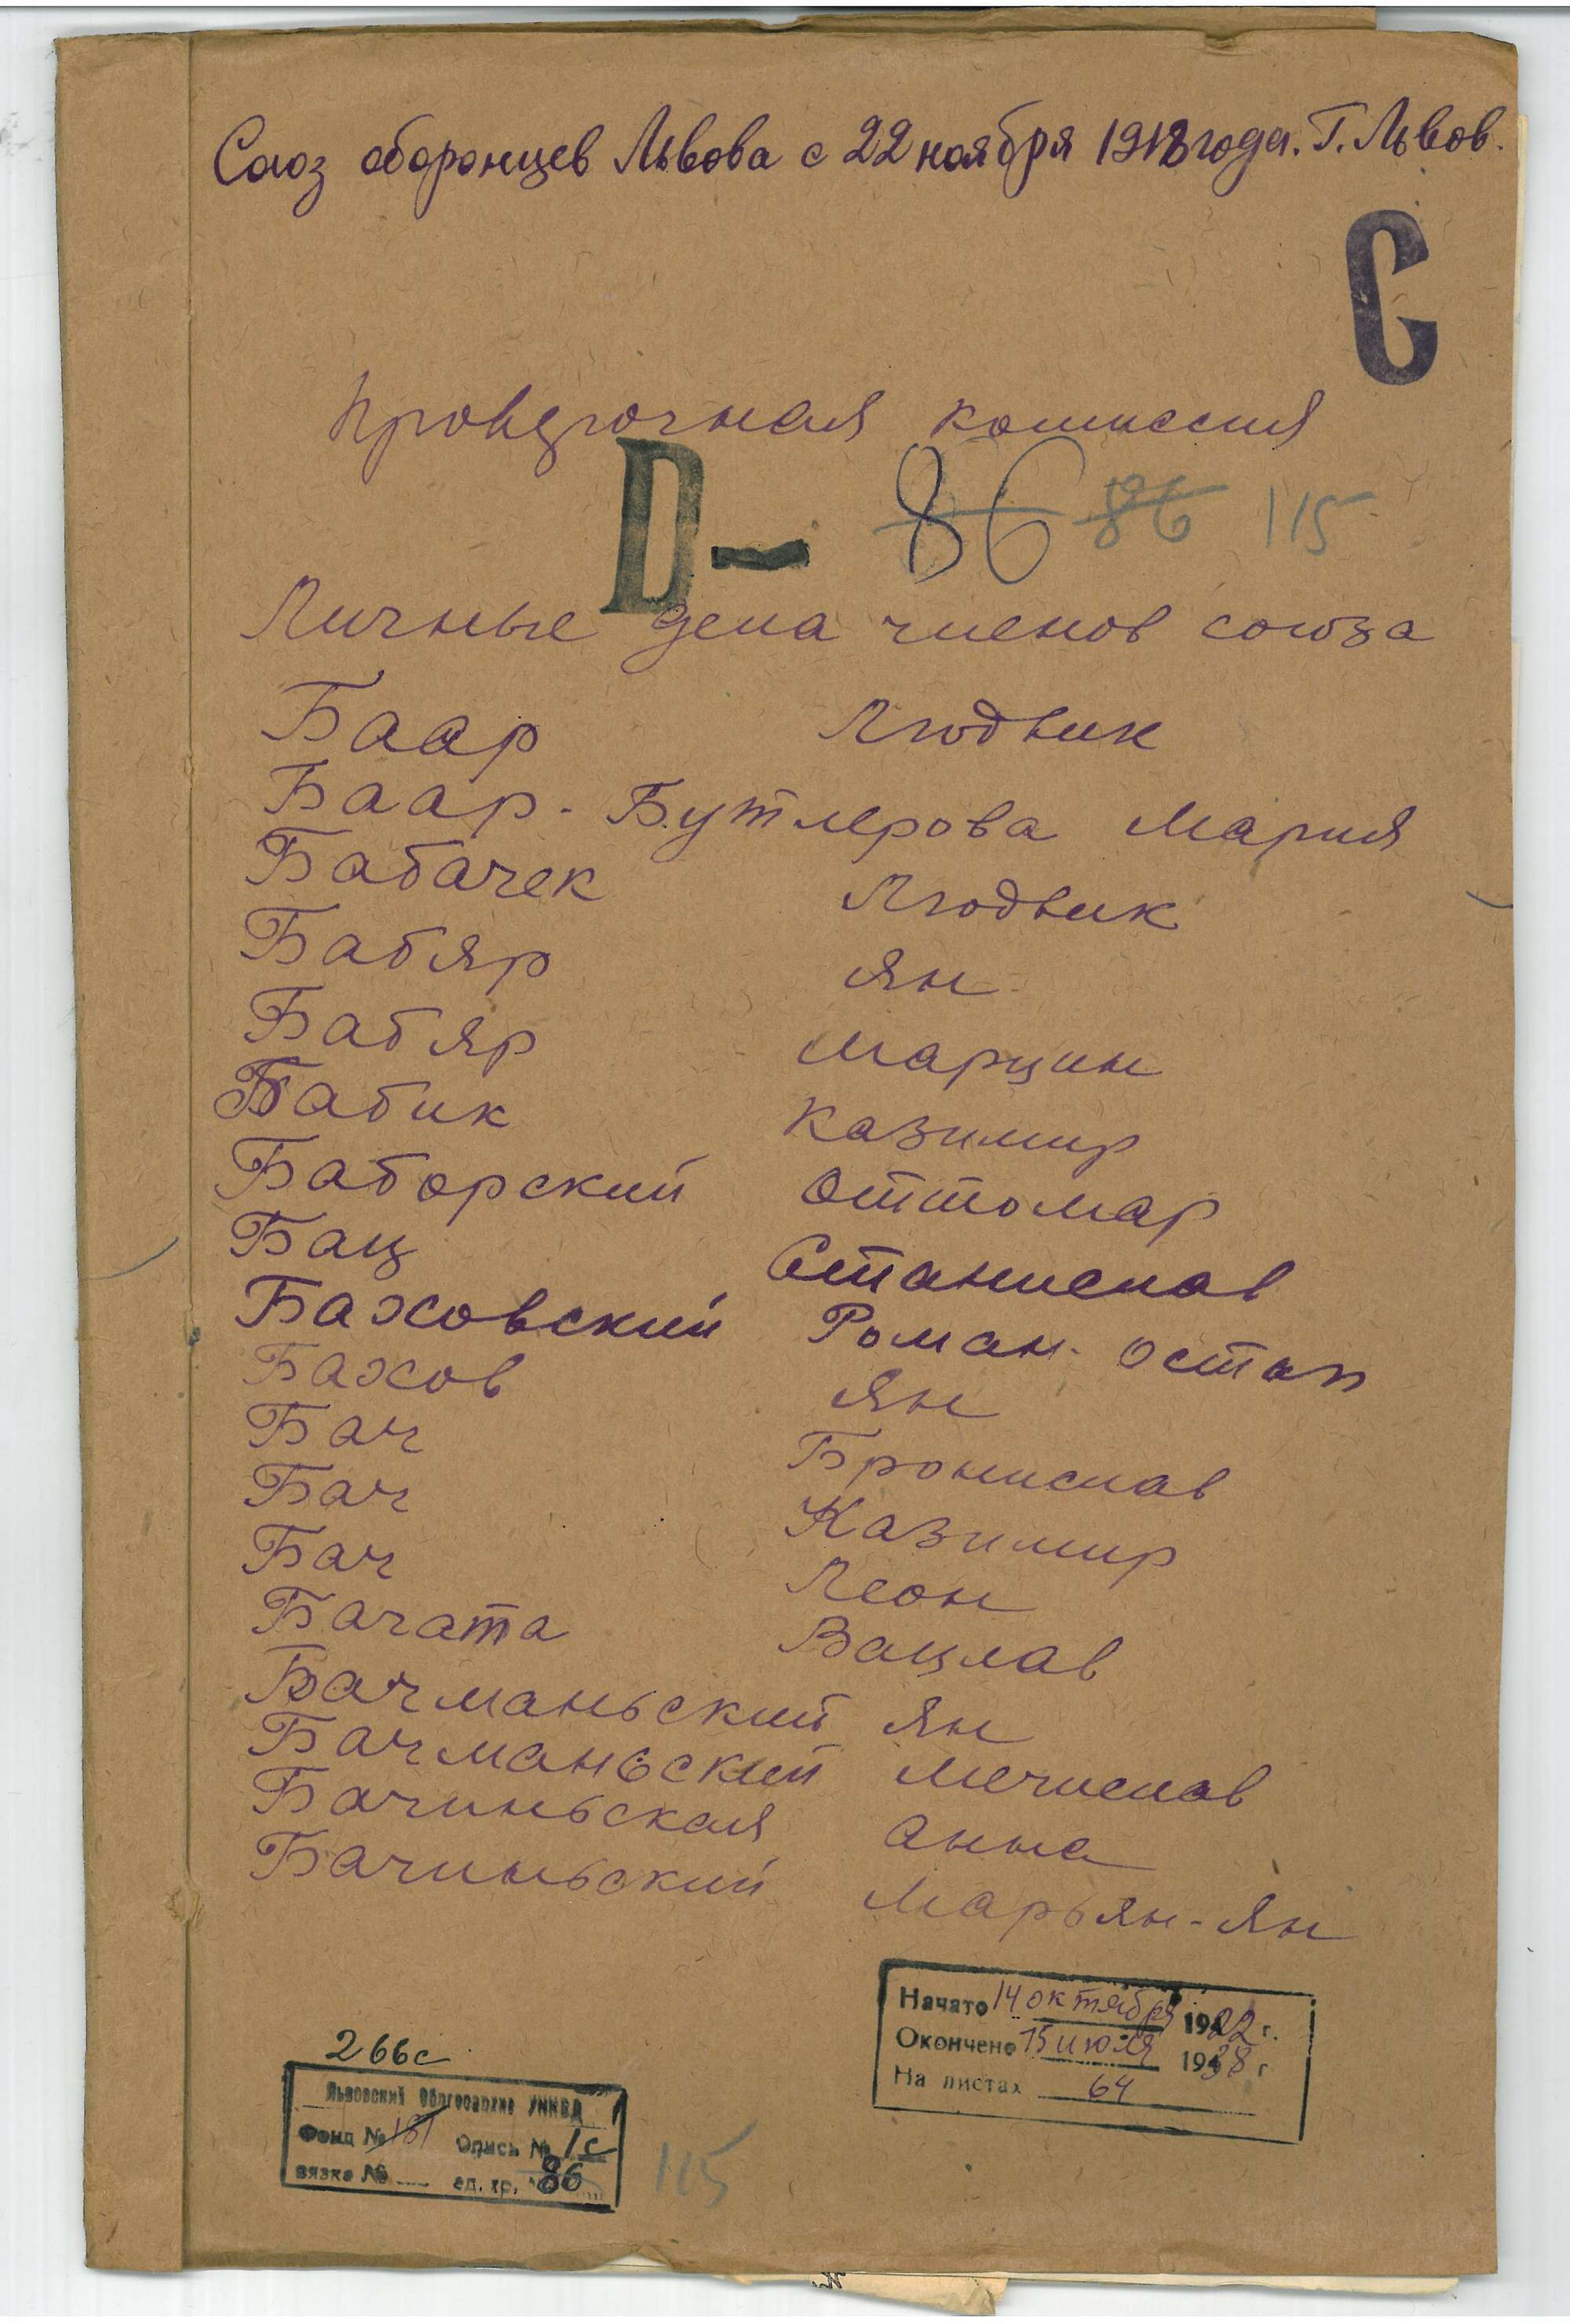 Союз оборонцев Львова с 22 ноября 1918 года. Г. Львов.
С
комиссия
D - 86 86 115
Личные дела членов союза
Баар Людвик
Баар-Бутлерова Мария
Бабачек Людвик
Бабяр Ян
Бабяр Марцин
Бабик Казимир
Баборский Оттомар
Бац Станислав
Баховский Роман-Остап
Бахов Ян
Бач Бронислав
Бач Казимир
Бач Леон
Бачата Вацлав
Бачманьский Ян
Бачманьский Мечислав
Бачиньская Анна
Бачиньский Марьян-Ян
Начато 14 октября 1922 г.
Окончено 15 июля 1938 г
На листах 64
266с
Львовский Облгосархив УНКВД
Фонд № 181 Опись № 1с
вязка № ед. хр. 86
115